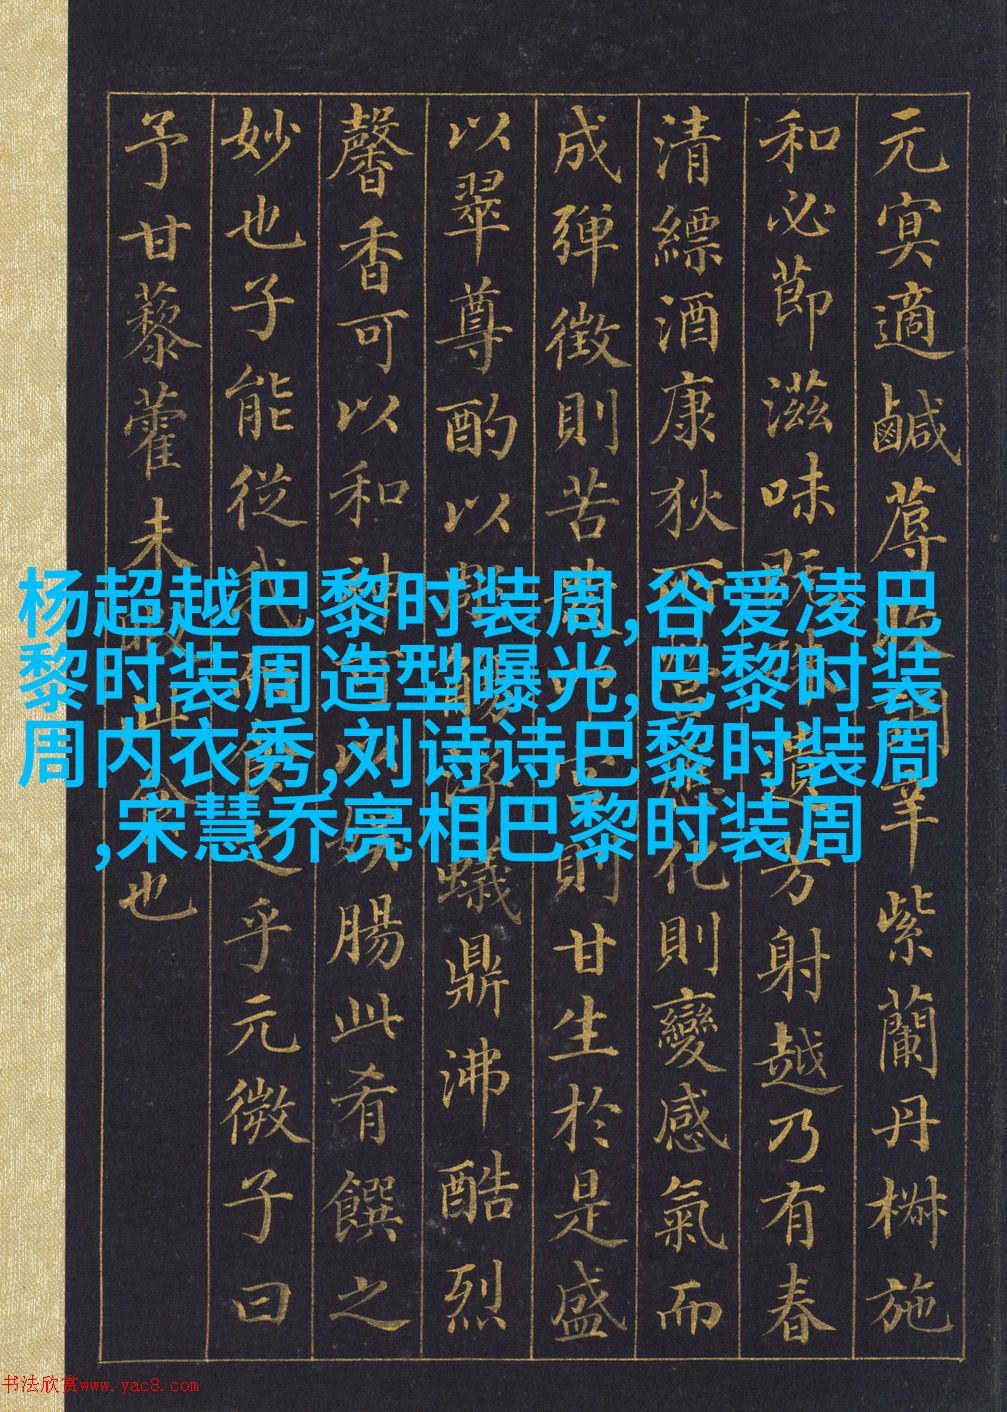 元冥適鹹蓐辛紫蘭丹椒施
和必節滋味既遺芳射越乃有春
清縹酒康狄所應化則變感氣而
成彈徵則苦發則甘生於是盛
以翠尊酌以觴浮蟻鼎沸酷烈
馨香可以和神以娛腸此肴饌之
妙也子能從我食之乎元微子曰
予甘藜藿未暇此食也
杨超越巴黎时装周,谷爱凌巴
黎时装周造型曝光,巴黎时装
周内衣秀,刘诗诗巴黎时装周
,宋慧乔亮相巴黎时装周
书法欣赏www.yac8.com